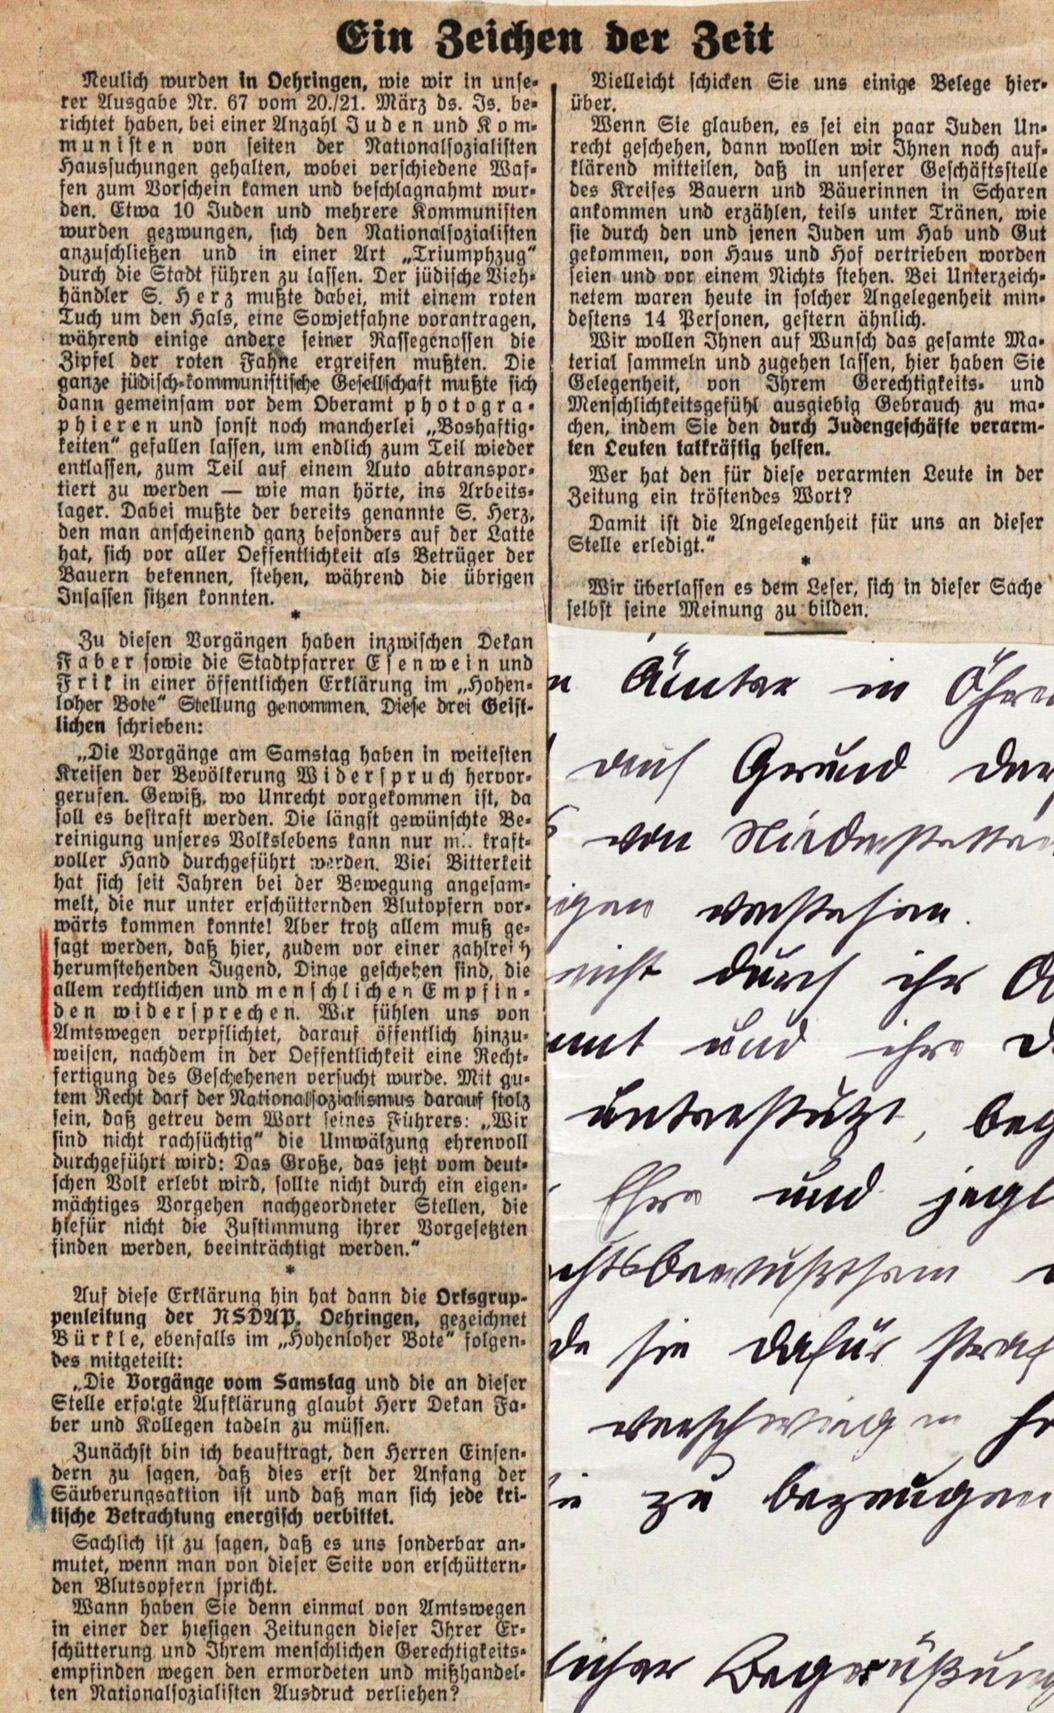 Ein Zeichen der Zeit
Neulich wurden in Oehringen, wie wir in unse-
rer Ausgabe Nr. 67 vom 20./21. März ds. Js. be-
richtet haben, bei einer Anzahl Juden und Kom-
munisten von seiten der Nationalsozialisten
Haussuchungen gehalten, wobei verschiedene Waf-
fen zum Vorschein kamen und beschlagnahmt wur-
den. Etwa 10 Juden und mehrere Kommunisten
wurden gezwungen, sich den Nationalsozialisten
anzuschließen und in einer Art „Triumphzug“
durch die Stadt führen zu lassen. Der jüdische Vieh-
händler S. Herz mußte dabei, mit einem roten
Tuch um den Hals, eine Sowjetfahne vorantragen,
während einige andere seiner Rassegenossen die
Zipfel der roten Fahne ergreifen mußten. Die
ganze jüdisch-kommunistische Gesellschaft mußte sich
dann gemeinsam vor dem Oberamt photogra-
phieren und sonst noch mancherlei „Boshaftig-
keiten“ gefallen lassen, um endlich zum Teil wieder
entlassen, zum Teil auf einem Auto abtranspor-
tiert zu werden — wie man hörte, ins Arbeits-
lager. Dabei mußte der bereits genannte S. Herz,
den man anscheinend ganz besonders auf der Latte
hat, sich vor aller Oeffentlichkeit als Betrüger der
Bauern bekennen, stehen, während die übrigen
Insassen sitzen konnten.
*
Zu diesen Vorgängen haben inzwischen Dekan
Faber sowie die Stadtpfarrer Esenwein und
Frik in einer öffentlichen Erklärung im „Hohen-
loher Bote“ Stellung genommen. Diese drei Geist-
lichen schrieben:
„Die Vorgänge am Samstag haben in weitesten
Kreisen der Bevölkerung Widerspruch hervor-
gerufen. Gewiß, wo Unrecht vorgekommen ist, da
soll es bestraft werden. Die längst gewünschte Be-
reinigung unseres Volkslebens kann nur kraft-
voller Hand durchgeführt werden. Viel Bitterkeit
hat sich seit Jahren bei der Bewegung angesam-
melt, die nur unter erschütternden Blutopfern vor-
wärts kommen konnte! Aber trotz allem muß ge-
sagt werden, daß hier, zudem vor einer zahlreich
herumstehenden Jugend, Dinge geschehen sind, die
allem rechtlichen und menschlichen Empfin-
den widersprechen. Wir fühlen uns von
Amtswegen verpflichtet, darauf öffentlich hinzu-
weisen, nachdem in der Oeffentlichkeit eine Recht-
fertigung des Geschehenen versucht wurde. Mit gu-
tem Recht darf der Nationalsozialismus darauf stolz
sein, daß getreu dem Wort seines Führers: „Wir
sind nicht rachsüchtig“ die Umwälzung ehrenvoll
durchgeführt wird: Das Große, das jetzt vom deut-
schen Volk erlebt wird, sollte nicht durch ein eigen-
mächtiges Vorgehen nachgeordneter Stellen, die
hiefür nicht die Zustimmung ihrer Vorgesetzten
finden werden, beeinträchtigt werden.“
*
Auf diese Erklärung hin hat dann die Ortsgrup-
penleitung der NSDAP. Oehringen, gezeichnet
Bürkle, ebenfalls im „Hohenloher Bote“ folgen-
des mitgeteilt:
„Die Vorgänge vom Samstag und die an dieser
Stelle erfolgte Aufklärung glaubt Herr Dekan Fa-
ber und Kollegen tadeln zu müssen.
Zunächst bin ich beauftragt, den Herren Einsen-
dern zu sagen, daß dies erst der Anfang der
Säuberungsaktion ist und daß man sich jede kri-
tische Betrachtung energisch verbittet.
Sachlich ist zu sagen, daß es uns sonderbar an-
mutet, wenn man von dieser Seite von erschüttern-
den Blutsopfern spricht.
Wann haben Sie denn einmal von Amtswegen
in einer der hiesigen Zeitungen dieser Ihrer Er-
schütterung und Ihrem menschlichen Gerechtigkeits-
empfinden wegen den ermordeten und mißhandel-
ten Nationalsozialisten Ausdruck verliehen?
Vielleicht schicken Sie uns einige Belege hier-
über.
Wenn Sie glauben, es sei ein paar Juden Un-
recht geschehen, dann wollen wir Ihnen noch auf-
klärend mitteilen, daß in unserer Geschäftsstelle
des Kreises Bauern und Bäuerinnen in Scharen
ankommen und erzählen, teils unter Tränen, wie
sie durch den und jenen Juden um Hab und Gut
gekommen, von Haus und Hof vertrieben worden
seien und vor einem Nichts stehen. Bei Unterzeich-
netem waren heute in solcher Angelegenheit min-
destens 14 Personen, gestern ähnlich.
Wir wollen Ihnen auf Wunsch das gesamte Ma-
terial sammeln und zugehen lassen, hier haben Sie
Gelegenheit, von Ihrem Gerechtigkeits- und
Menschlichkeitsgefühl ausgiebig Gebrauch zu ma-
chen, indem Sie den durch Judengeschäfte verarm-
ten Leuten tatkräftig helfen.
Wer hat den für diese verarmten Leute in der
Zeitung ein tröstendes Wort?
Damit ist die Angelegenheit für uns an dieser
Stelle erledigt.“
*
Wir überlassen es dem Leser, sich in dieser Sache
selbst seine Meinung zu bilden.
n Ämter in Öhrin
auf Grund der
von Niederstetten
igen verstehen.
nicht durch ihr
amt und ihre
unterstützt, beg
Ehre und jegl
chtsbewußtsein
de sie dafür straf
verschwiegen
zu bezeugen
licher Begrüßung